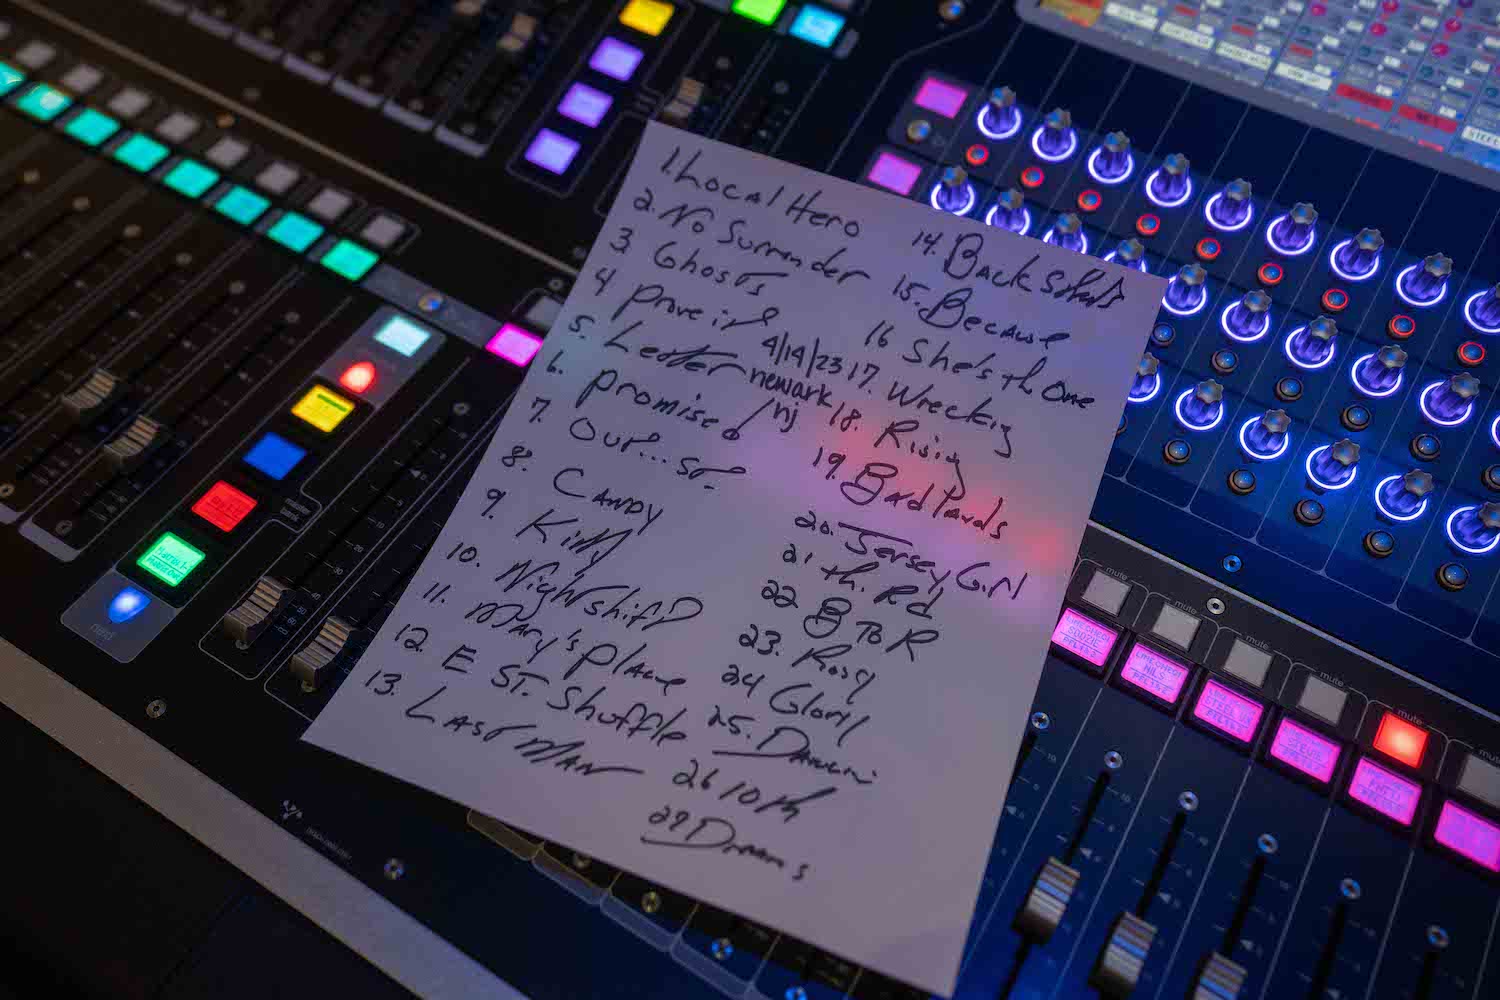 1. Local Hero
2. No Surrender
3 Ghosts
4 Prove it
5. Letter
6. Promised
7. Our... St.
8. Candy
9. Kitty
10. Nightshift
11. Mary's Place
12. E St. Shuffle
13. Last Man
4/14/23
newark
nj
14. Backstreets
15. Because
16 She's th One
17. Wrecking
18. Rising
19. Badlands
20. Jersey Girl
21 th. Rd
22. B to R
23. Rosy
24 Glory
25. Dancin
26 10th
27 Dreams
mute
mute
mute
mute
mute